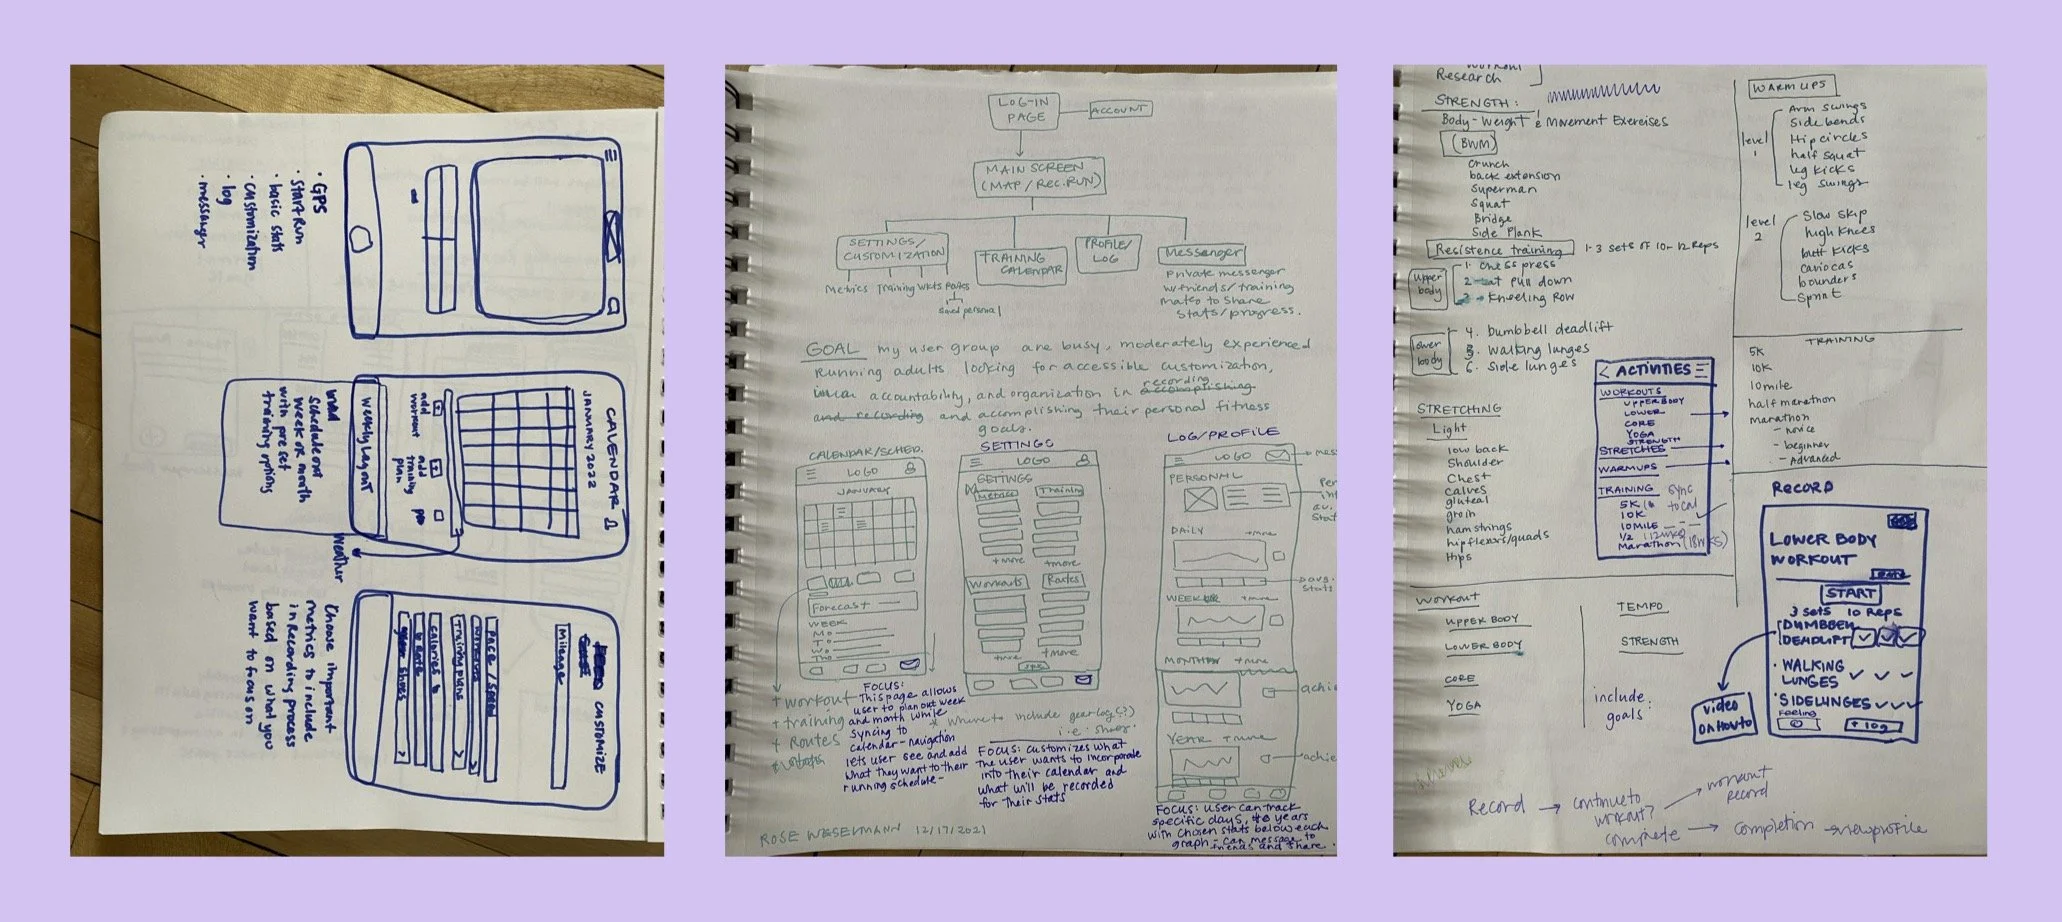 · GPS
· Start Run
· basic stats
· customization
· log
· messager
CALENDAR
JANUARY 2022
add workout
add training plan
weekly layout
schedule out
week or month
with pre set
training options
weather
CUSTOMIZE
Mileage
Pace/speed
Training plans
Calories
Choose important
metrics to include
in Recording process
based on what you
want to focus on
LOG-IN
PAGE
ACCOUNT
MAIN SCREEN
(MAP / REC. RUN)
SETTINGS/
CUSTOMIZATION
TRAINING
CALENDAR
PROFILE/
LOG
Messenger
Metrics Training Wkts Routes
Saved personal
Private messenger
w friends/training
mates to share
stats/progress.
GOAL my user group are busy, moderately experienced
Running adults looking for accessible customization,
accountability, and organization in recording accomplishing
and recording and accomplishing their personal fitness
goals.
CALENDAR/SCHED.
LOGO
JANUARY
Forecast
WEEK
Mo
Tu
We
Thu
SETTINGS
LOGO
SETTINGS
Metrics Training
+more +more
Workouts Routes
+more +more
LOG/PROFILE
LOGO
PERSONAL
DAILY +more
WEEKLY +more
MONTHLY +more
YEAR +more
+ workout
+ training
+ Routes
FOCUS:
This page allows
user to plan out week
and month while
syncing to
calendar-navigation
lets user see and add
what they want to their
running schedule-
* Where to include gear log (?)
i.e. shoes
FOCUS: customizes what
the user wants to incorporate
into their calendar and
what will be recorded
for their stats
FOCUS: user can track
specific days, to years
with chosen stats below each
graph - can message to
friends and share.
ROSE WESELMANN 12/17/2021
workout
Research
STRENGTH:
Body-Weight & Movement Exercises
(BWM)
Crunch
back extension
Superman
Squat
Bridge
Side Plank
Resistence training 1-3 sets of 10-12 Reps
upper
body
1. chess press
2. Lat pull down
3. Kneeling Row
lower
body
4. Dumbbell deadlift
5. Walking lunges
6. Side lunges
STRETCHING
Light
low back
Shoulder
Chest
calves
gluteal
groin
hamstrings
hipflexors/quads
Hips
< ACTIVITIES
WORKOUTS
UPPERBODY
LOWER
CORE
YOGA
STRENGTH
STRETCHES
WARMUPS
TRAINING sync
to cal
5K
10K
10MILE
1/2 (12wks)
Marathon (18wks)
Workout
UPPER BODY
LOWER BODY
CORE
YOGA
TEMPO
STRENGTH
include:
goals
WARM UPS
level
1
Arm swings
Side bends
Hip circles
half squat
leg kicks
leg swings
level
2
Slow skip
high knees
butt kicks
cariocas
bounders
Sprint
TRAINING
5K
10K
10 mile
half marathon
marathon
- novice
- beginner
- Advanced
RECORD
LOWER BODY
WORKOUT
START
3 sets 10 Reps
DUMBBELL
DEADLIFT
· WALKING
LUNGES
· SIDELUNGES
Feeling
+ log
video
on how to
Record → continue to
workout? → workout
record
complete → completion → view profile